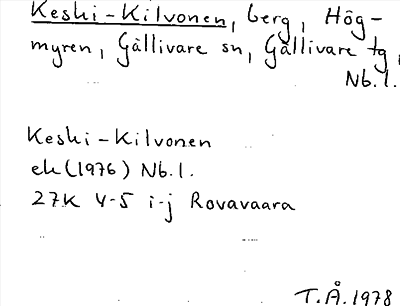 Keski-Kilvonen, berg, Hög-
myren, Gällivare sn, Gällivare tg,
Nb.l.
Keski-Kilvonen
ek (1976) Nb.l.
27K 4-5 i-j Rovavaara
T.Å.1978